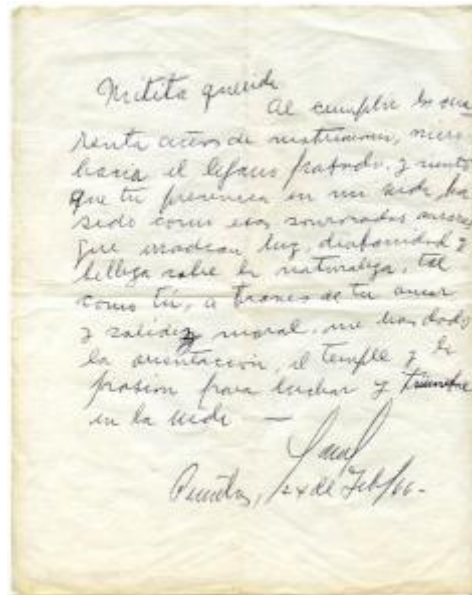 Mitita querida
Al cumplir los cua
renta años de matrimonio, miro
hacia el lejano pasado. y siento
que tu presencia en mi vida, ha
sido como esas sonrosadas auroras
que irradian luz, diafanidad y
belleza sobre la naturaleza, tal
como tú, a traves de tu amor
y solidez moral, me has dado
la orientación, el temple y la
pasion para luchar y triunfar
en la vida —
24 de Feb/66.-